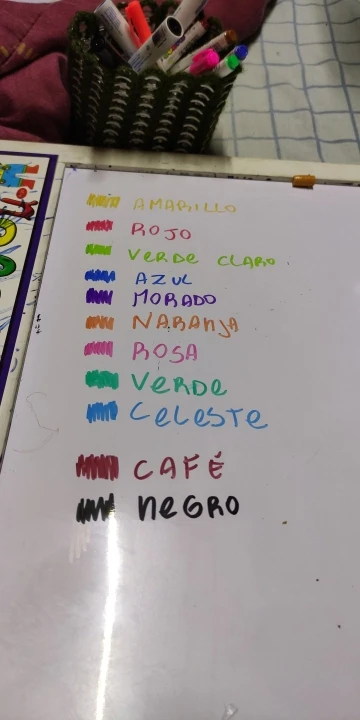 AMARILLO
ROJO
VERDE CLARO.
AZUL
MORADO
NARANJA
ROSA
VERDE
CELESTE
CAFÉ
NEGRO